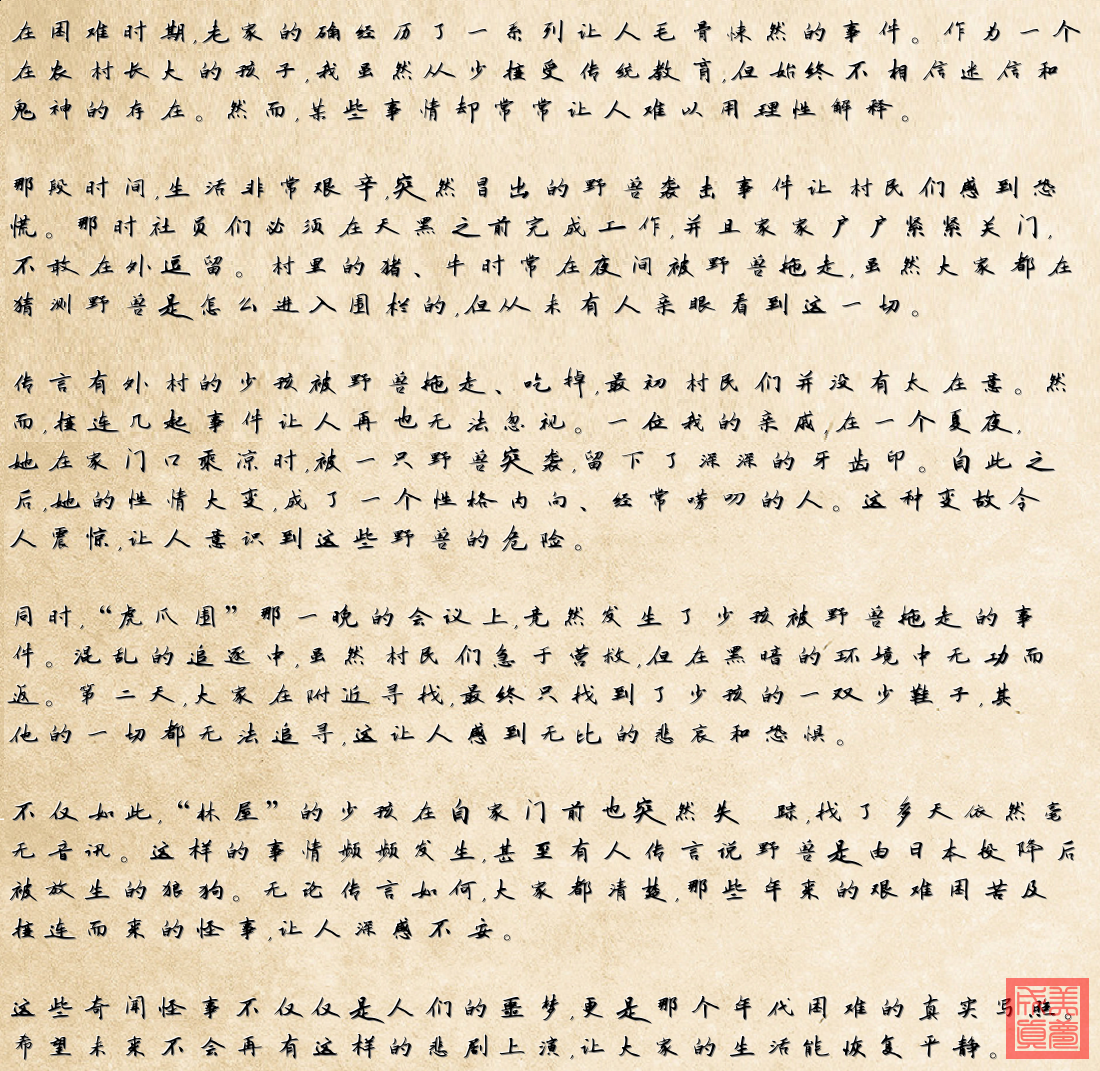 在困难时期,老家的确经历了一系列让人毛骨悚然的事件。作为一个
在农村长大的孩子,我虽然从少接受传统教育,但始终不相信迷信和
鬼神的存在。然而,某些事情却常常让人难以用理性解释。
那段时间,生活非常艰辛,突然冒出的野兽袭击事件让村民们感到恐
慌。那时社员们必须在天黑之前完成工作,并且家家户户紧紧关门,
不敢在外逗留。村里的猪、牛时常在夜间被野兽拖走,虽然大家都在
猜测野兽是怎么进入围栏的,但从未有人亲眼看到这一切。
传言有外村的少孩被野兽拖走、吃掉,最初村民们并没有太在意。然
而,接连几起事件让人再也无法忽视。一位我的亲戚,在一个夏夜,
她在家门口乘凉时,被一只野兽突袭,留下了深深的牙齿印。自此之
后,她的性情大变,成了一个性格内向、经常唠叨的人。这种变故令
人震惊,让人意识到这些野兽的危险。
同时,“虎爪围”那一晚的会议上,竟然发生了少孩被野兽拖走的事
件。混乱的追逐中,虽然村民们急于营救,但在黑暗的环境中无功而
返。第二天,大家在附近寻找,最终只找到了少孩的一双少鞋子,其
他的一切都无法追寻,这让人感到无比的悲哀和恐惧。
不仅如此,“林屋”的少孩在自家门前也突然失 踪,找了多天依然毫
无音讯。这样的事情频频发生,甚至有人传言说野兽是由日本投降后
被放生的狼狗。无论传言如何,大家都清楚,那些年来的艰难困苦及
接连而来的怪事,让人深感不安。
这些奇闻怪事不仅仅是人们的噩梦,更是那个年代困难的真实写照。
希望未来不会再有这样的悲剧上演,让大家的生活能恢复平静。